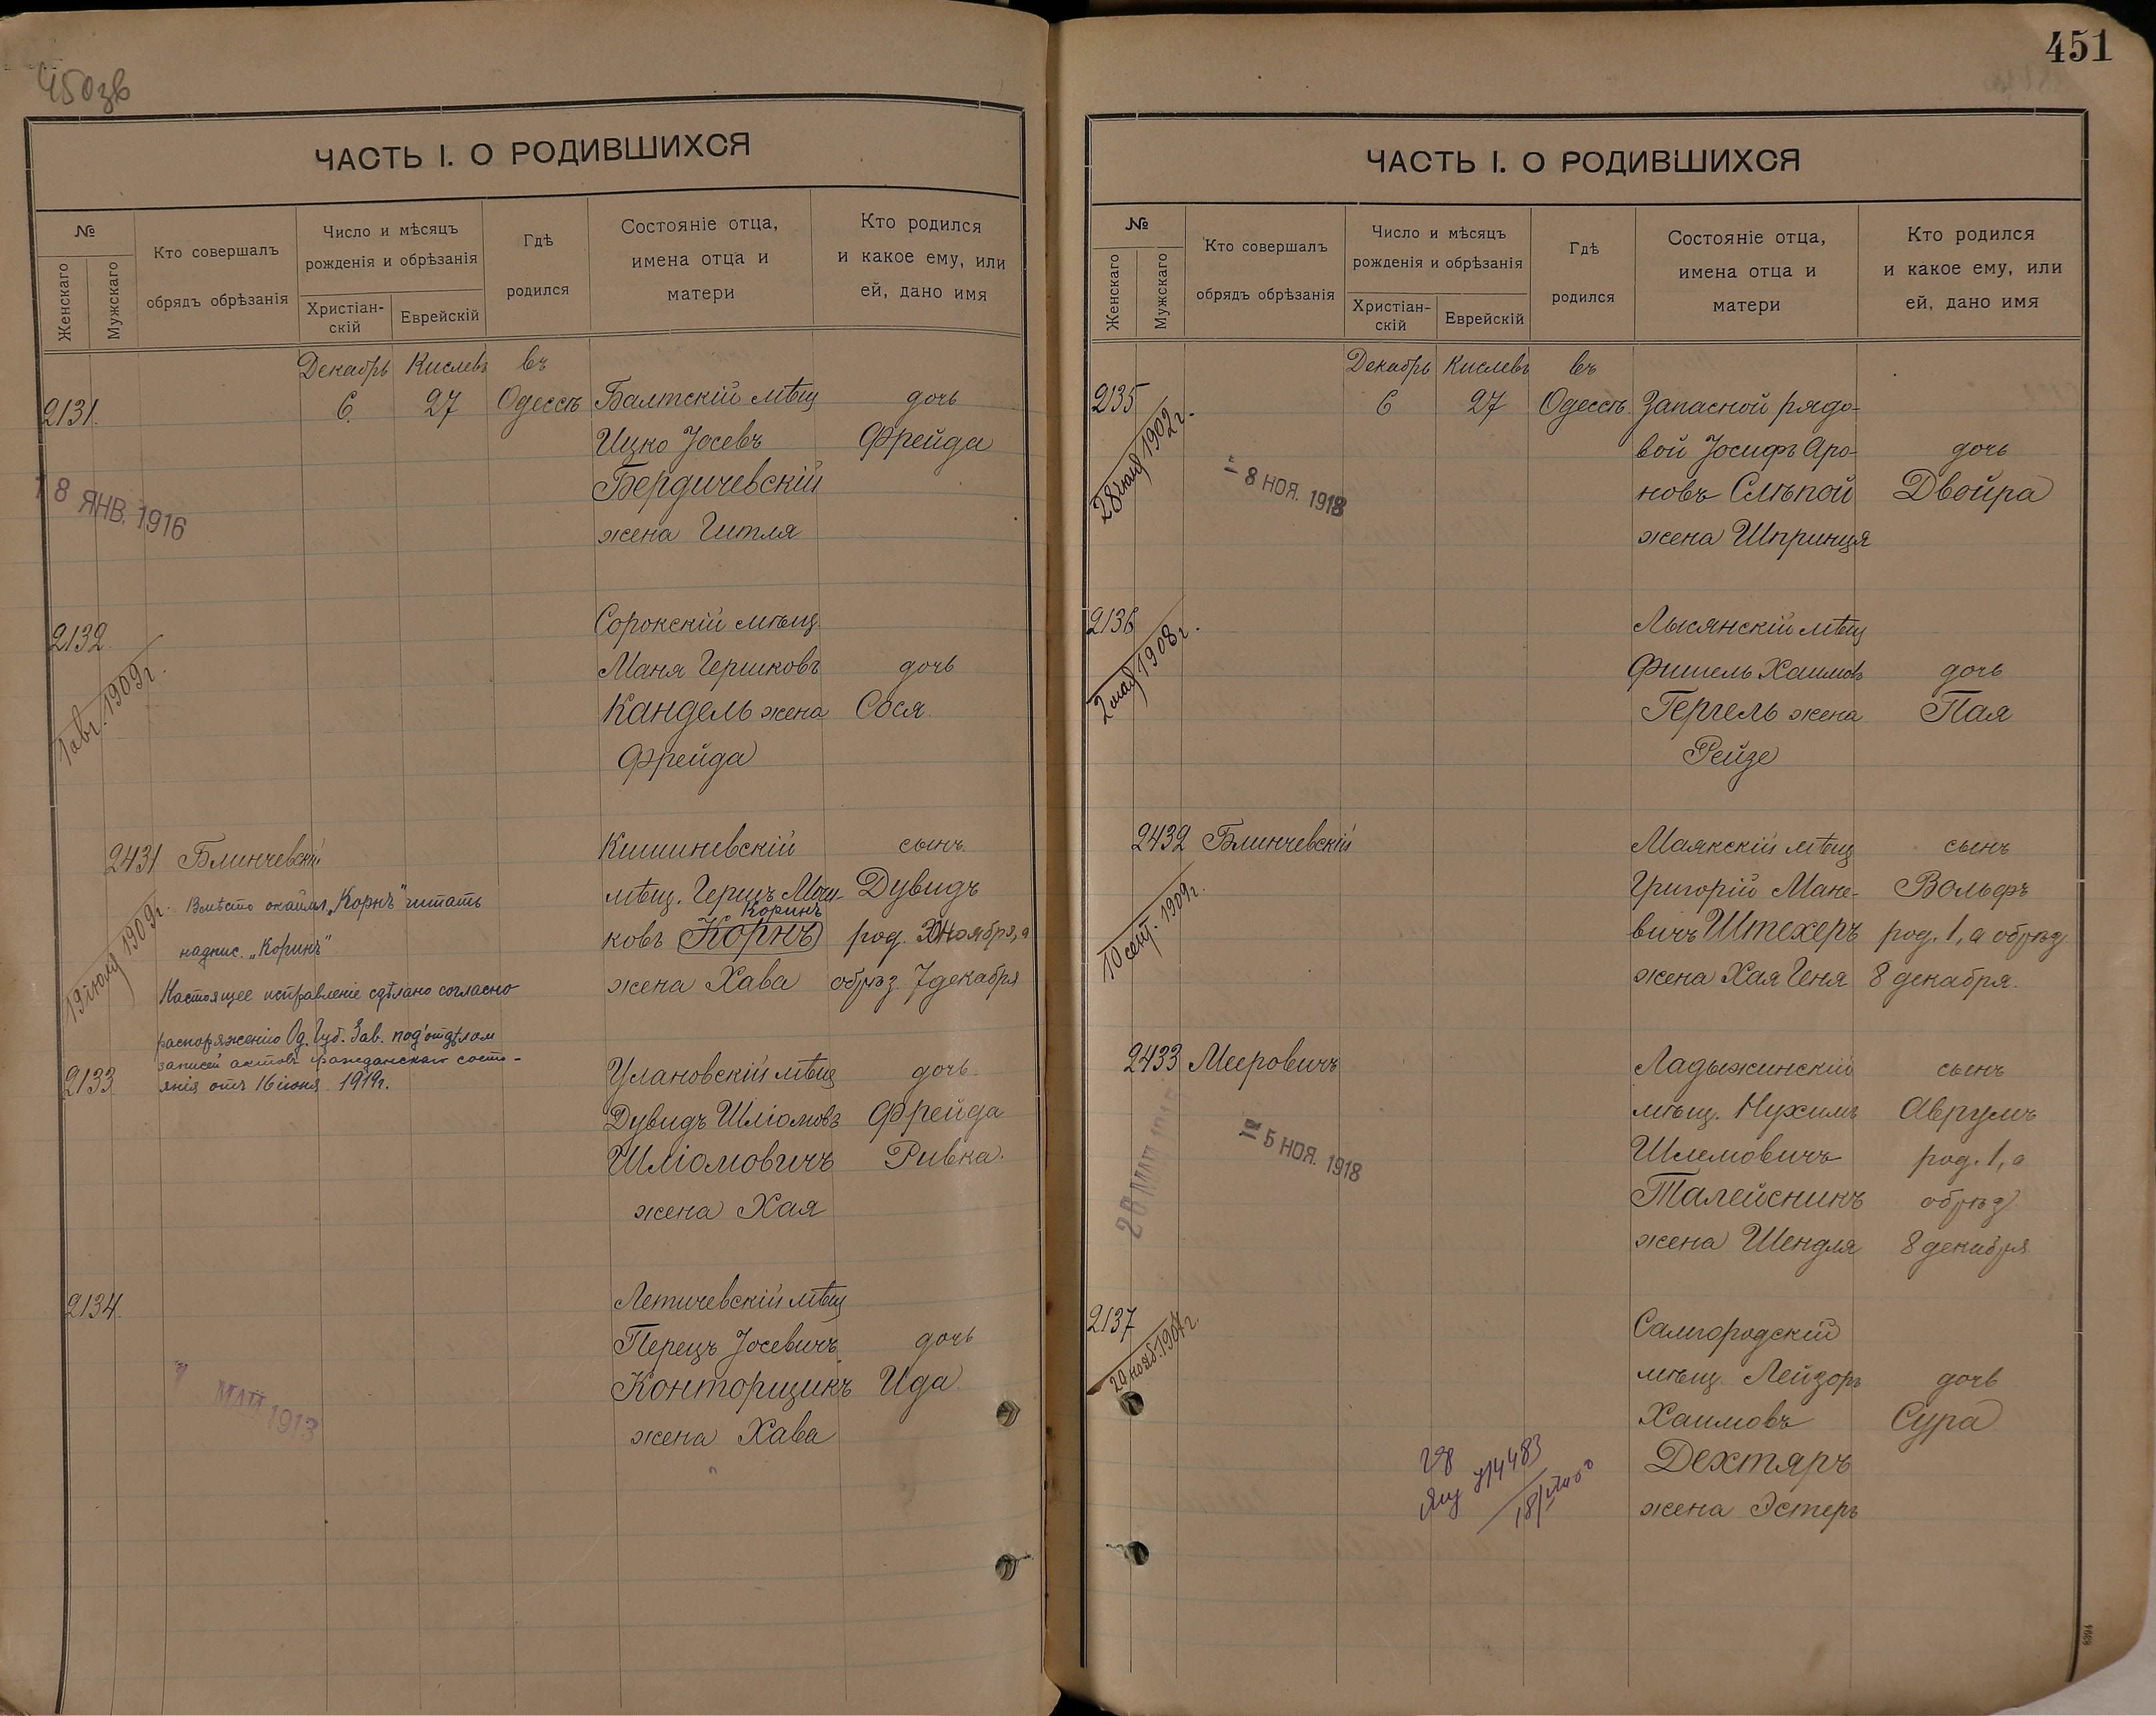 450зв
ЧАСТЬ I. О РОДИВШИХСЯ
№
Женскаго
Мужскаго
Кто совершалъ
обрядъ обрѣзанія
Число и мѣсяцъ
рожденія и обрѣзанія
Христіан-
скій
Еврейскій
Гдѣ
родился
Состояніе отца,
имена отца и
матери
Кто родился
и какое ему, или
ей, дано имя
Декабрь Кислевъ въ
2131. 6 27 Одессѣ Балтскій мѣщ дочь
Ицко Іосевъ Фрейда
Бердичевскій
18 ЯНВ. 1916
жена Гитля
2132. Сорокскій мѣщ.
Маня Гершковъ дочь
Кандель жена Сося.
1 авг. 1909г.
Фрейда
2431 Блинчевскій Кишиневскій сынъ
мѣщ. Герцъ Мош- Дувидъ
Вмѣсто окайм. „Корнъ" читать
Коринъ
ковъ Корнъ род. ноября, а
надпис. „Коринъ"
19 іюля 1909г.
жена Хава обрѣз. 7 декабря
Настоящее исправленіе сдѣлано согласно
распоряженію Од. Губ. Зав. под'отдѣлом
записей актовъ гражданскаго состо-
янія отъ 16 іюня 1919г.
2133. Улановскій мѣщ дочь
Дувидъ Шліомовъ Фрейда
Шліомовичъ Ривка.
жена Хая
2134. Летичевскій мѣщ
Перецъ Іосевичъ дочь
Конторщикъ Ида
МАЙ 1913
жена Хава
451
ЧАСТЬ I. О РОДИВШИХСЯ
№
Женскаго
Мужскаго
Кто совершалъ
обрядъ обрѣзанія
Число и мѣсяцъ
рожденія и обрѣзанія
Христіан-
скій
Еврейскій
Гдѣ
родился
Состояніе отца,
имена отца и
матери
Кто родился
и какое ему, или
ей, дано имя
Декабрь Кислевъ въ
2135 6 27 Одессѣ. Запасной рядо-
вой Іосифъ Аро- дочь
28 іюля 1902г.
– 8 НОЯ. 1918
новъ Слѣпой Двойра
жена Шпринця
2136 Лысянскій мѣщ
Фишель Хаимовъ дочь
2 мая 1908г.
Гергель жена Пая
Рейзе
2432 Блинчевскій Маякскій мѣщ сынъ
Григорій Мане- Вольфъ
10 сент. 1909г.
вичъ Штехеръ род. 1, а обрѣз.
жена Хая Геня 8 декабря.
2433 Мееровичъ Ладыжинскій сынъ
мѣщ. Нухимъ Аврумъ
– 5 НОЯ. 1918
Шлемовичъ род. 1, а
Талейсникъ обрѣз.
жена Шендля 8 декабря
2137 Самгородскій
мѣщ. Лейзоръ дочь
Хаимовъ Сура
Дехтяръ
жена Эстеръ